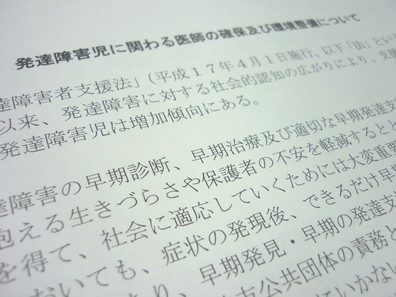 発達障害児に関わる医師の確保及び環境整備について
達障害者支援法」(平成17年4月1日施行。以下「法」とい
以来、発達障害に対する社会的認知の広がりにより、支援
発達障害児は増加傾向にある。
達障害の早期診断、早期治療及び適切な早期発達支
抱える生きづらさや保護者の不安を軽減するとと
を得て、社会に適応していくためには大変重要
おいても、症状の発現後、できるだけ早
り、早期発見・早期の発達支
方公共団体の責務と
ていかない